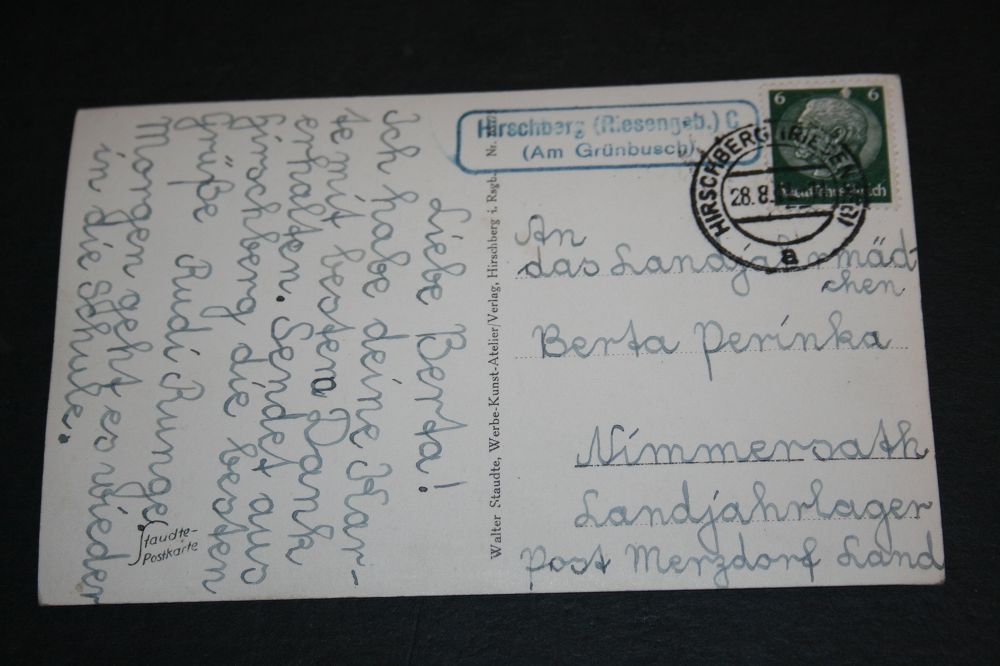 Hirschberg (Riesengeb.) C
(Am Grünbusch)
6 6
HIRSCHBERG (RIESENGEB)
28.8.
a
An
das Landjahrmäd
chen
Berta Perinka
Nimmersath
Landjahrlager
Post Merzdorf Land
Walter Staudte, Werbe-Kunst-Atelier/Verlag, Hirschberg i. Rsgb. Nr.
Liebe Berta!
Ich habe deine Kar-
te mit bestem Dank
erhalten. Sendet aus
Hirschberg die besten
Grüße Rudi Runge.
Morgen geht es wieder
in die Schule.
Staudte-
Postkarte